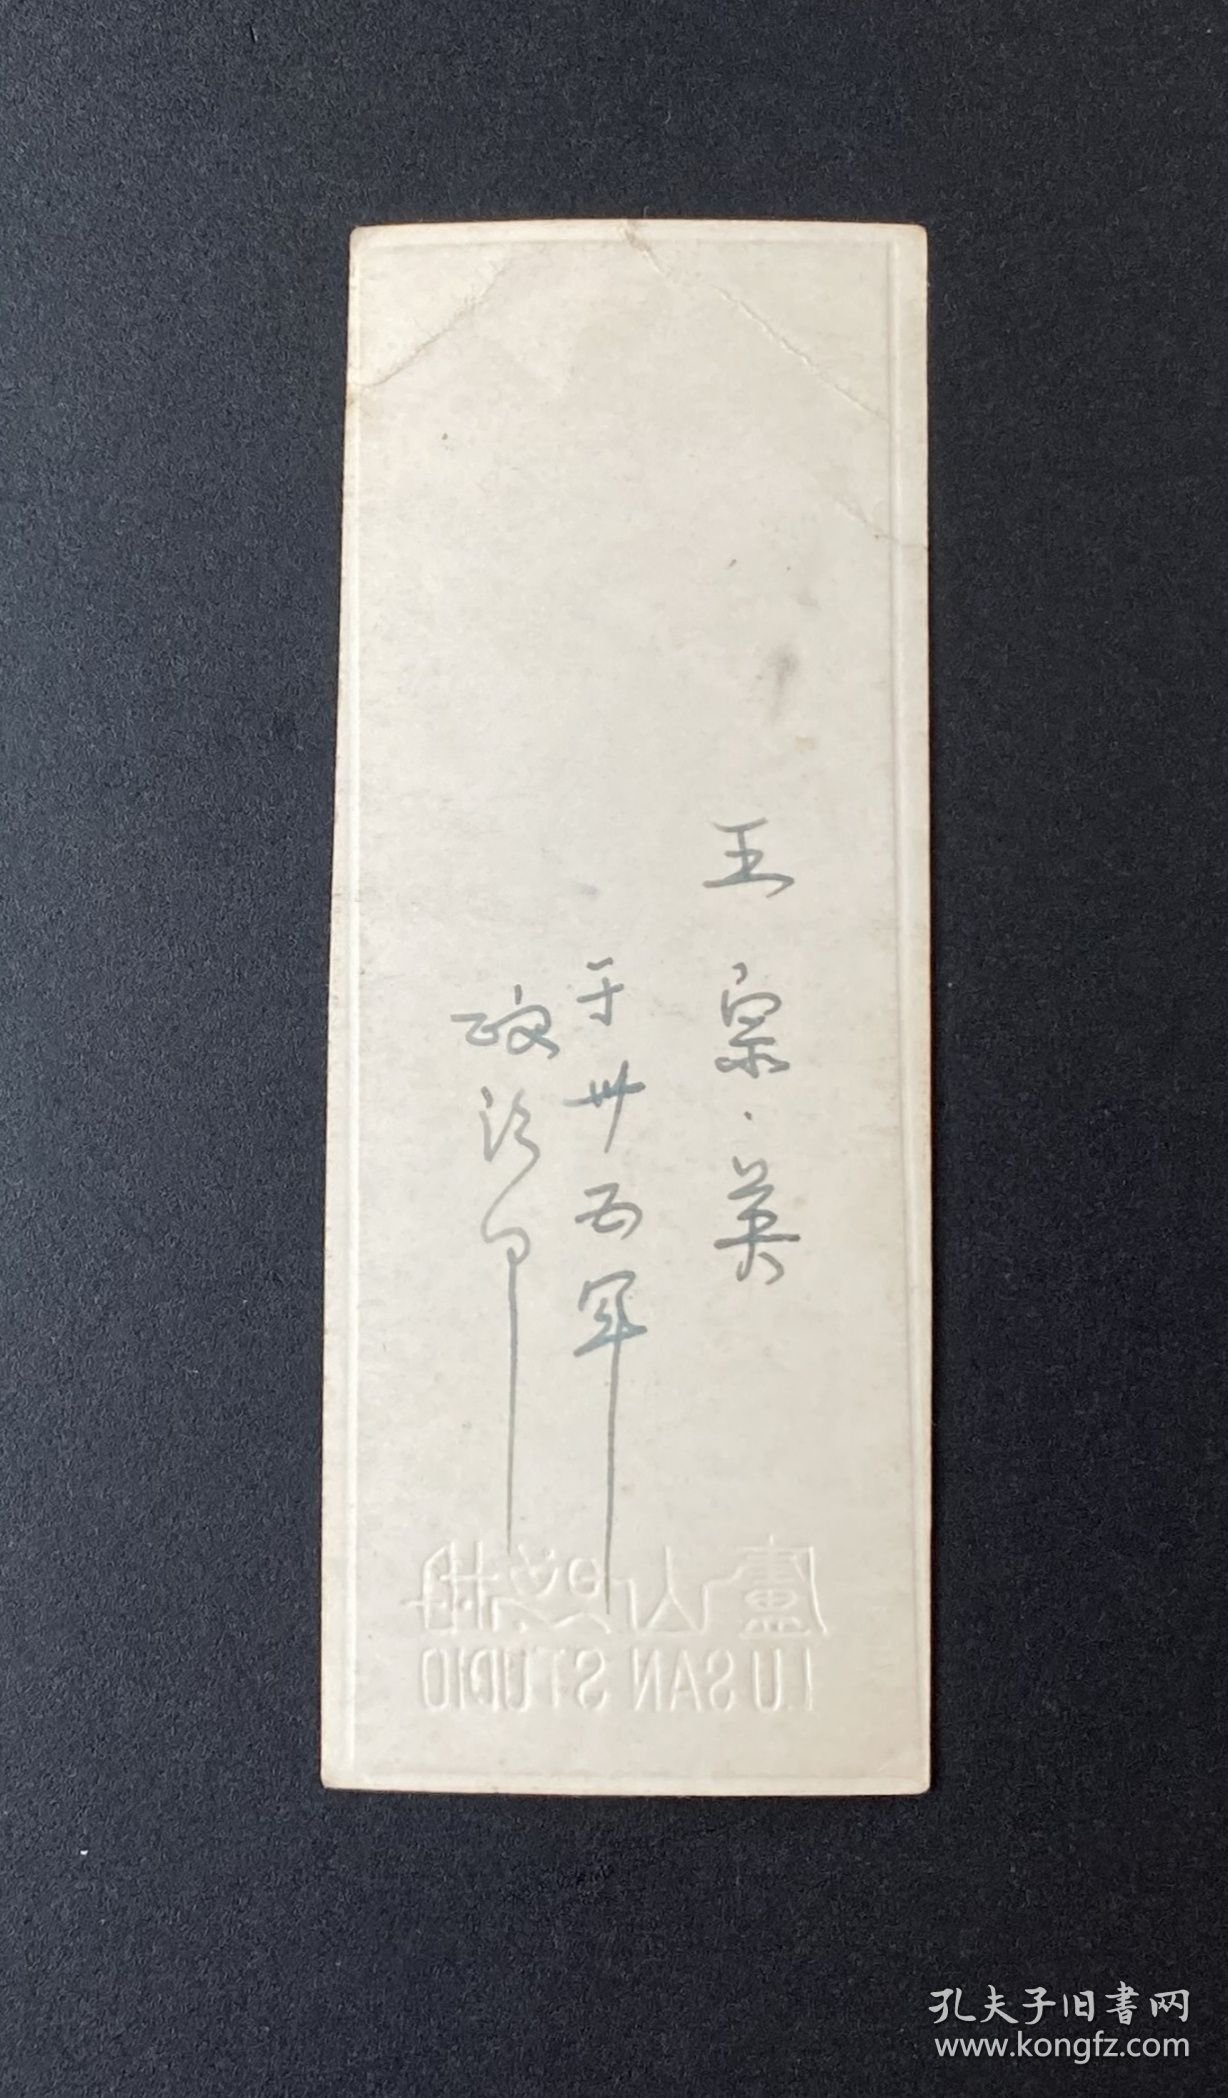 王宗英
于卅西军
政治部
廬山照相
LU SAN STUDIO
孔夫子旧書网
www.kongfz.com